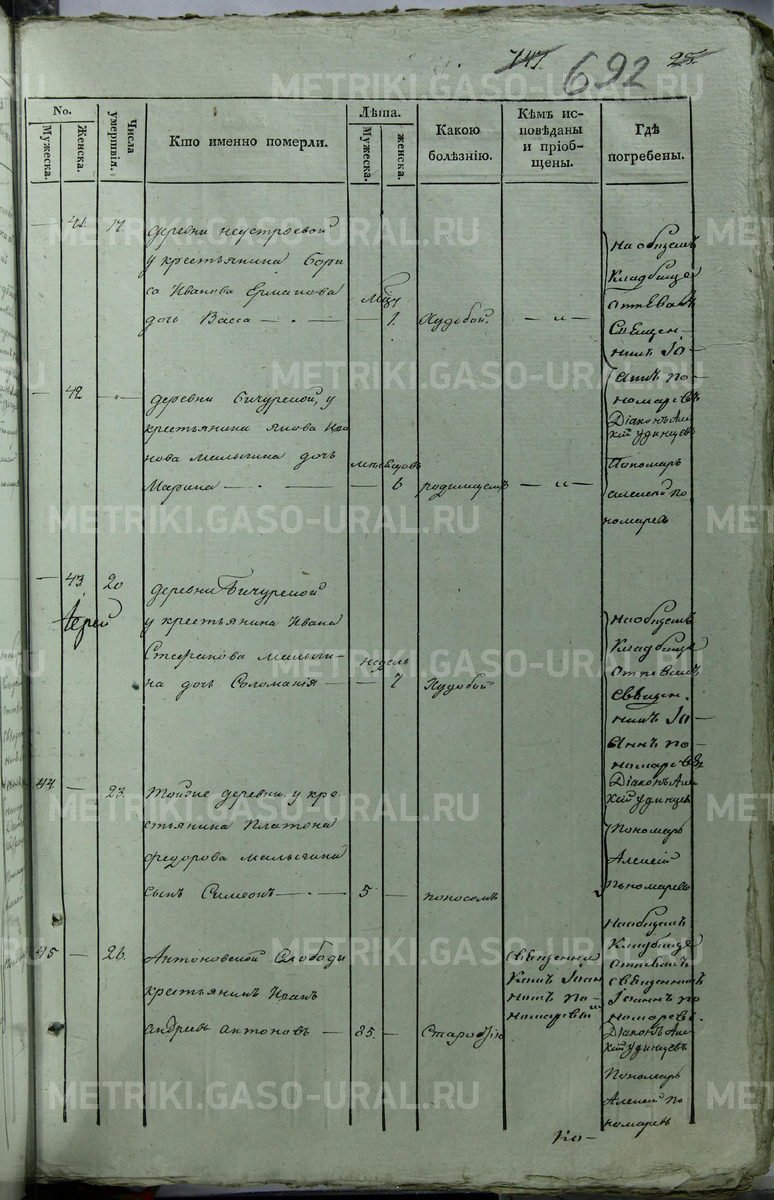 147. 692 25.
No.
Мужеска.
Женска.
Числа умершвія.
Кто именно померли.
Лѣта.
Мужеска.
женска.
Какою болѣзнію.
Кѣмъ исповѣданы и пріобщены.
Гдѣ погребены.
— 41 17 деревни неустроевой
у крестьянина Бори
са Иванова Ермакова
дочь Васса — 1. Худобой, — „ —
на общемъ
Кладбище
отпевалъ
Священ-
никъ Іо-
аннъ По-
номаревъ
Діаконъ Але
ксѣй удинцевъ
Пономарь
алексей По
номаревъ
— 42 -„- деревни Бичуревой, у
крестьянина якова Ива
нова малыгина дочь
мѣсяцовъ
Марина — — 6 родимцемъ — „ —
— 43 20 деревни Бичуревой
у крестьянина Ивана
Стефанова малыги-
недель
на дочь Соломанія — — 7 Худобой
на общемъ
Кладбище
отпевалъ
Священ.
никъ Іо-
аннъ По-
номаревъ
Діаконъ Але
ксѣй удинцевъ
Пономарь
Алексей
Пономаревъ
44 — 23. тойже деревни у кре-
стьянина Платона
федорова малыгина
сынъ Симеонъ — 5 — поносомъ
45 — 26. Антоновской Слободы
крестьянинъ Иванъ
андреевъ антоновъ — 85. — Старостію
священни
комъ Іоан
номъ По-
номаревым
На общемъ
Кладбище
отпевалъ
священникъ
Іоаннъ по
номаревъ.
Діаконъ Але
ксѣй удинцевъ
Пономарь
Алексей По
номаревъ
METRIKI.GASO-URAL.RU